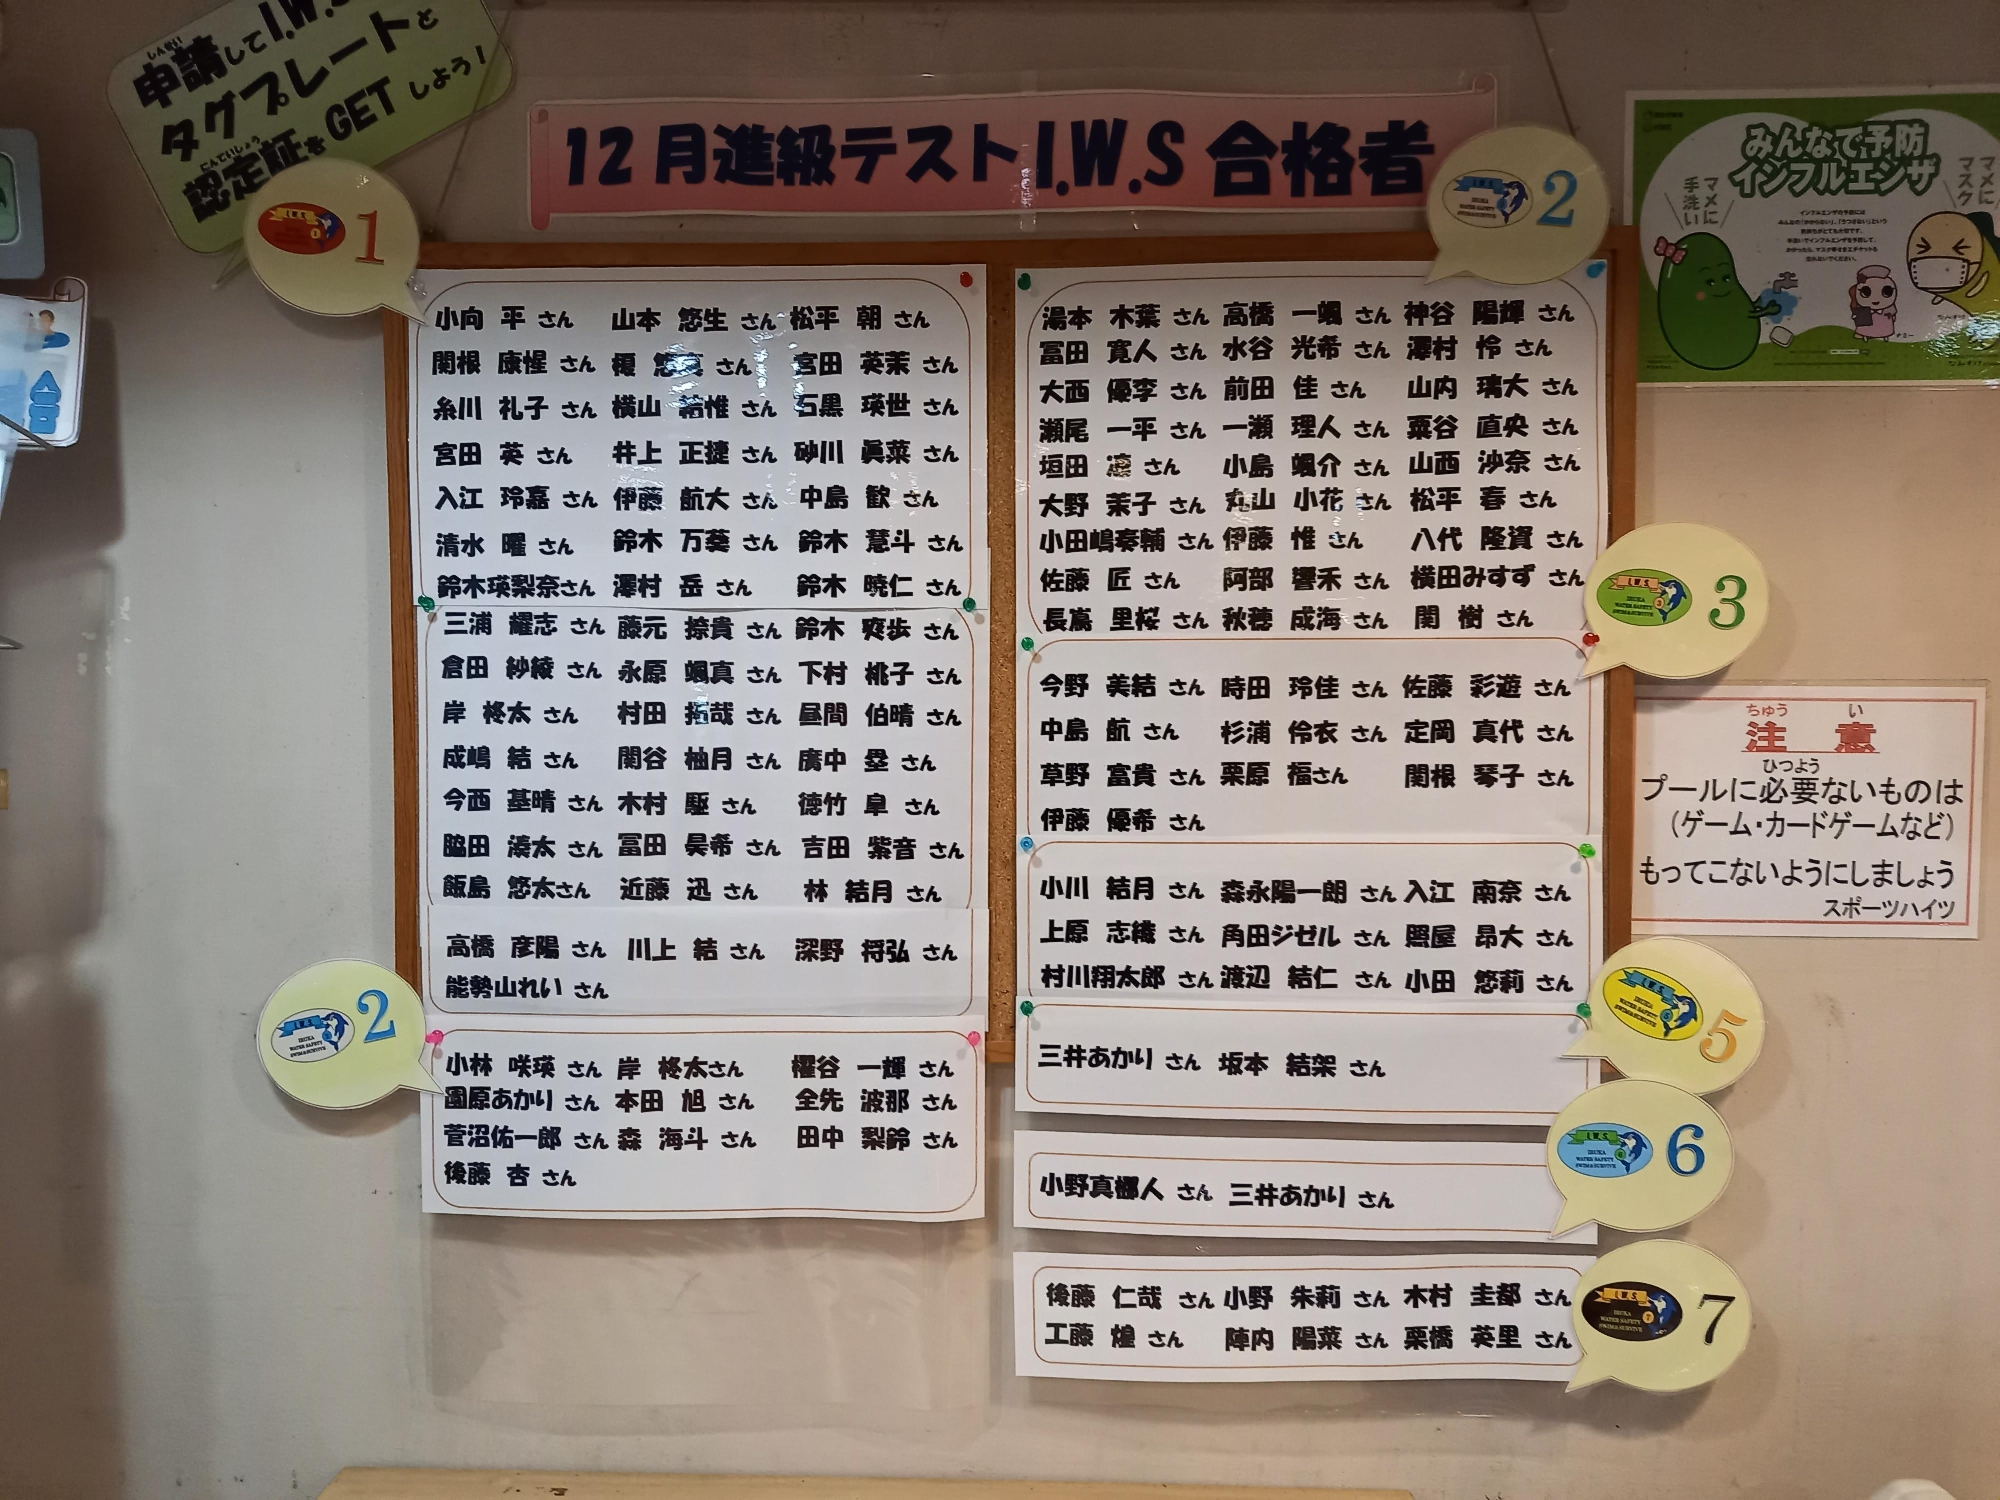 申請して I.W.S
しんせい
タグプレートと
にんていしょう
認定証をGETしよう!
12月進級テストI.W.S合格者
1
小向 平 さん 山本 悠生 さん 松平 朝 さん
関根 康惺 さん 榎 さん 宮田 英茉 さん
糸川 礼子 さん 横山 結惟 さん 石黒 瑛世 さん
宮田 英 さん 井上 正捷 さん 砂川 眞菜 さん
入江 玲嘉 さん 伊藤 航大 さん 中島 歓 さん
清水 曜 さん 鈴木 万葵 さん 鈴木 慧斗 さん
鈴木瑛梨奈さん 澤村 岳 さん 鈴木 暁仁 さん
三浦 耀志 さん 藤元 捺貴 さん 鈴木 爽歩 さん
倉田 紗綾 さん 永原 颯真 さん 下村 桃子 さん
岸 柊太 さん 村田 拓哉 さん 昼間 伯晴 さん
成嶋 結 さん 関谷 柚月 さん 廣中 塁 さん
今西 基晴 さん 木村 駆 さん 徳竹 阜 さん
脇田 湊太 さん 冨田 昊希 さん 吉田 紫音 さん
飯島 悠太さん 近藤 迅 さん 林 結月 さん
高橋 彦陽 さん 川上 結 さん 深野 将弘 さん
能勢山れい さん
2
小林 咲瑛 さん 岸 柊太さん 櫂谷 一輝 さん
園原あかり さん 本田 旭 さん 全先 波那 さん
菅沼佑一郎 さん 森 海斗 さん 田中 梨鈴 さん
後藤 杏 さん
2
湯本 木葉 さん 高橋 一颯 さん 神谷 陽輝 さん
冨田 寛人 さん 水谷 光希 さん 澤村 怜 さん
大西 優李 さん 前田 佳 さん 山内 璃大 さん
瀬尾 一平 さん 一瀬 理人 さん 粟谷 直央 さん
垣田 さん 小島 颯介 さん 山西 沙奈 さん
大野 茉子 さん 丸山 小花 さん 松平 春 さん
小田嶋奏輔 さん 伊藤 惟 さん 八代 隆資 さん
佐藤 匠 さん 阿部 響禾 さん 横田みすず さん
長嶌 里桜 さん 秋穂 成海 さん 関 樹 さん
3
今野 美結 さん 時田 玲佳 さん 佐藤 彩遊 さん
中島 航 さん 杉浦 伶衣 さん 定岡 真代 さん
草野 富貴 さん 栗原 福さん 関根 琴子 さん
伊藤 優希 さん
小川 結月 さん 森永陽一朗 さん 入江 南奈 さん
上原 志織 さん 角田ジゼル さん 照屋 昂大 さん
村川翔太郎 さん 渡辺 結仁 さん 小田 悠莉 さん
5
三井あかり さん 坂本 結架 さん
6
小野真梛人 さん 三井あかり さん
7
後藤 仁哉 さん 小野 朱莉 さん 木村 圭都 さん
工藤 煌 さん 陣内 陽菜 さん 栗橋 英里 さん
みんなで予防
インフルエンザ
マメに
手洗い
マメに
マスク
ちゅう い
注 意
ひつよう
プールに必要ないものは
(ゲーム・カードゲームなど)
もってこないようにしましょう
スポーツハイツ